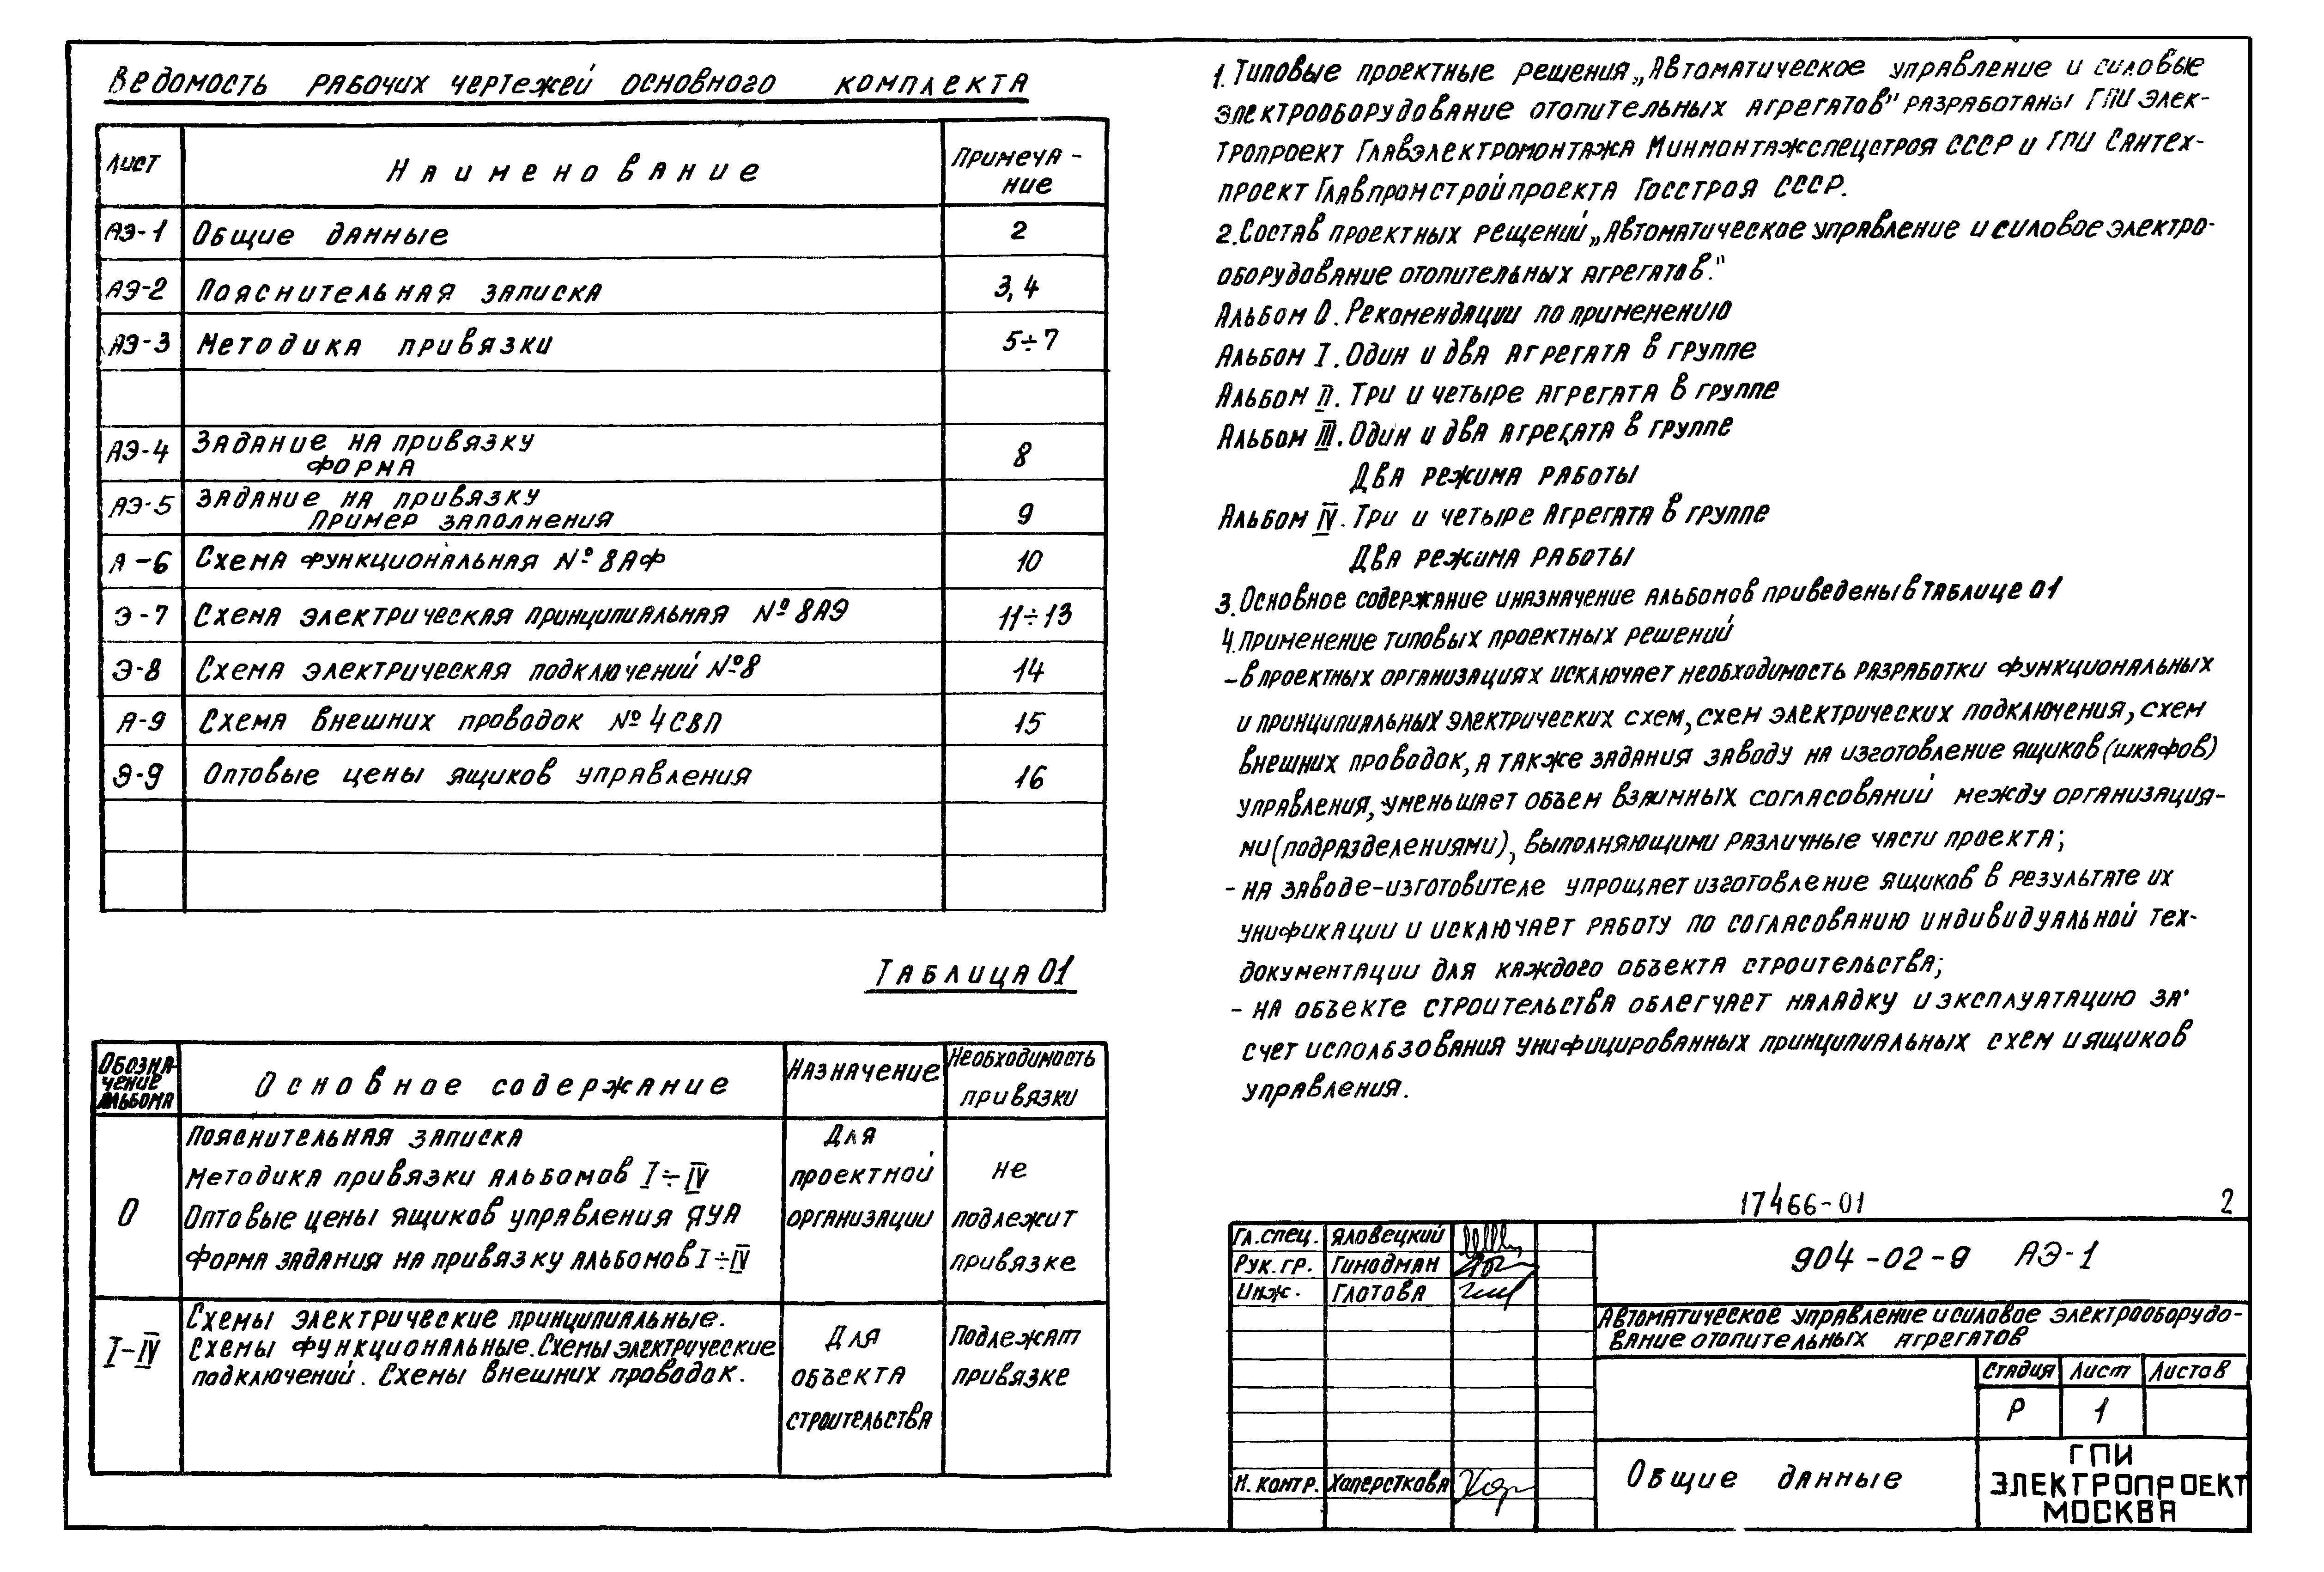 Ведомость рабочих чертежей основного комплекта
Лист Наименование Примеча-
ние
АЭ-1 Общие данные 2
АЭ-2 Пояснительная записка 3, 4
АЭ-3 Методика привязки 5÷7
АЭ-4 Задание на привязку
форма 8
АЭ-5 Задание на привязку
Пример заполнения 9
А-6 Схема функциональная № 8АФ 10
Э-7 Схема электрическая принципиальная № 8АЭ 11÷13
Э-8 Схема электрическая подключений №8 14
А-9 Схема внешних проводок № 4СВП 15
Э-9 Оптовые цены ящиков управления 16
Таблица 01
Обозна-
чение
альбома
Основное содержание
Назначение
Необходимость
привязки
0
Пояснительная записка
Методика привязки альбомов I÷IV
Оптовые цены ящиков управления ЯУА
Форма задания на привязку альбомов I÷IV
Для
проектной
организации
не
подлежит
привязке
I-IV
Схемы электрические принципиальные.
Схемы функциональные. Схемы электрические
подключений. Схемы внешних проводок.
Для
объекта
строительства
Подлежат
привязке
1. Типовые проектные решения „Автоматическое управление и силовые
электрооборудование отопительных агрегатов" разработаны ГПИ Элек-
тропроект Главэлектромонтажа Минмонтажспецстроя СССР и ГПИ Сантех-
проект Главпромстройпроекта Госстроя СССР.
2. Состав проектных рещений „Автоматическое управление и силовое электро-
оборудование отопительных агрегатов."
Альбом 0. Рекомендации по применению
Альбом I. Один и два агрегата в группе
Альбом II. Три и четыре агрегата в группе
Альбом III. Один и два агрегата в группе
Два режима работы
Альбом IV. Три и четыре агрегата в группе
Два режима работы
3. Основное содержание и назначение альбомов приведены в таблице 01
4. Применение типовых проектных решений
- в проектных организациях исключает необходимость разработки функциональных
и принципиальных электрических схем, схем электрических подключения, схем
внешних проводок, а также задания заводу на изготовление ящиков (шкафов)
управления, уменьшает объем взаимных согласований между организация-
ми (подразделениями), выполняющими различные части проекта;
- на заводе-изготовителе упрощает изготовление ящиков в результате их
унификации и исключает работу по согласованию индивидуальной тех-
документации для каждого объекта строительства;
- на объекте строительства облегчает наладку и эксплуатацию за
счет использования унифицированных принципиальных схем и ящиков
управления.
17466-01 2
Гл. спец. Яловецкий
Рук. гр. Гинодман
Инж. Глотова
Н. контр. Хаперсткова
904-02-9 АЭ-1
Автоматическое управление и силовое электрооборудо-
вание отопительных агрегатов
Стадия Лист Листов
Р 1
Общие данные
ГПИ
ЭЛЕКТРОПРОЕКТ
МОСКВА